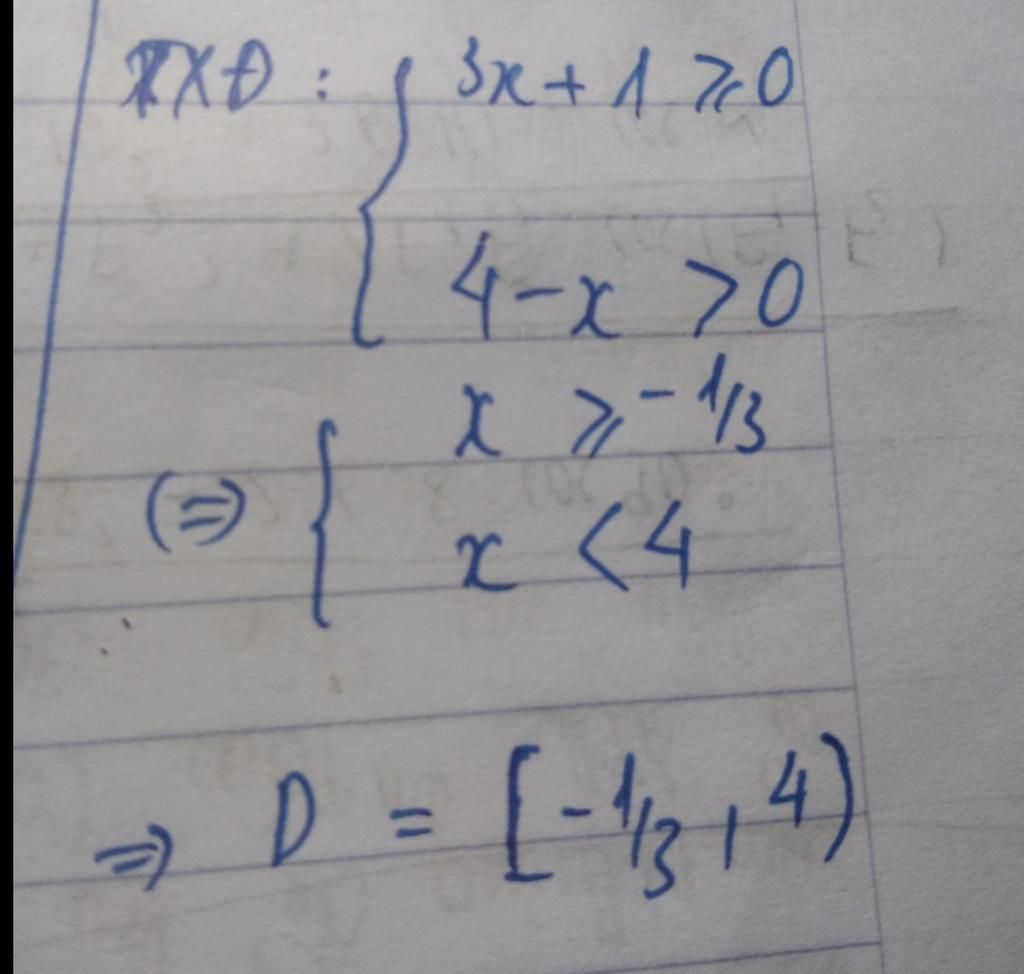 TXĐ : { 3x + 1 ⩾ 0
4 - x > 0
x ⩾ -1/3
(=) {
x < 4
=) D = [-1/3, 4)